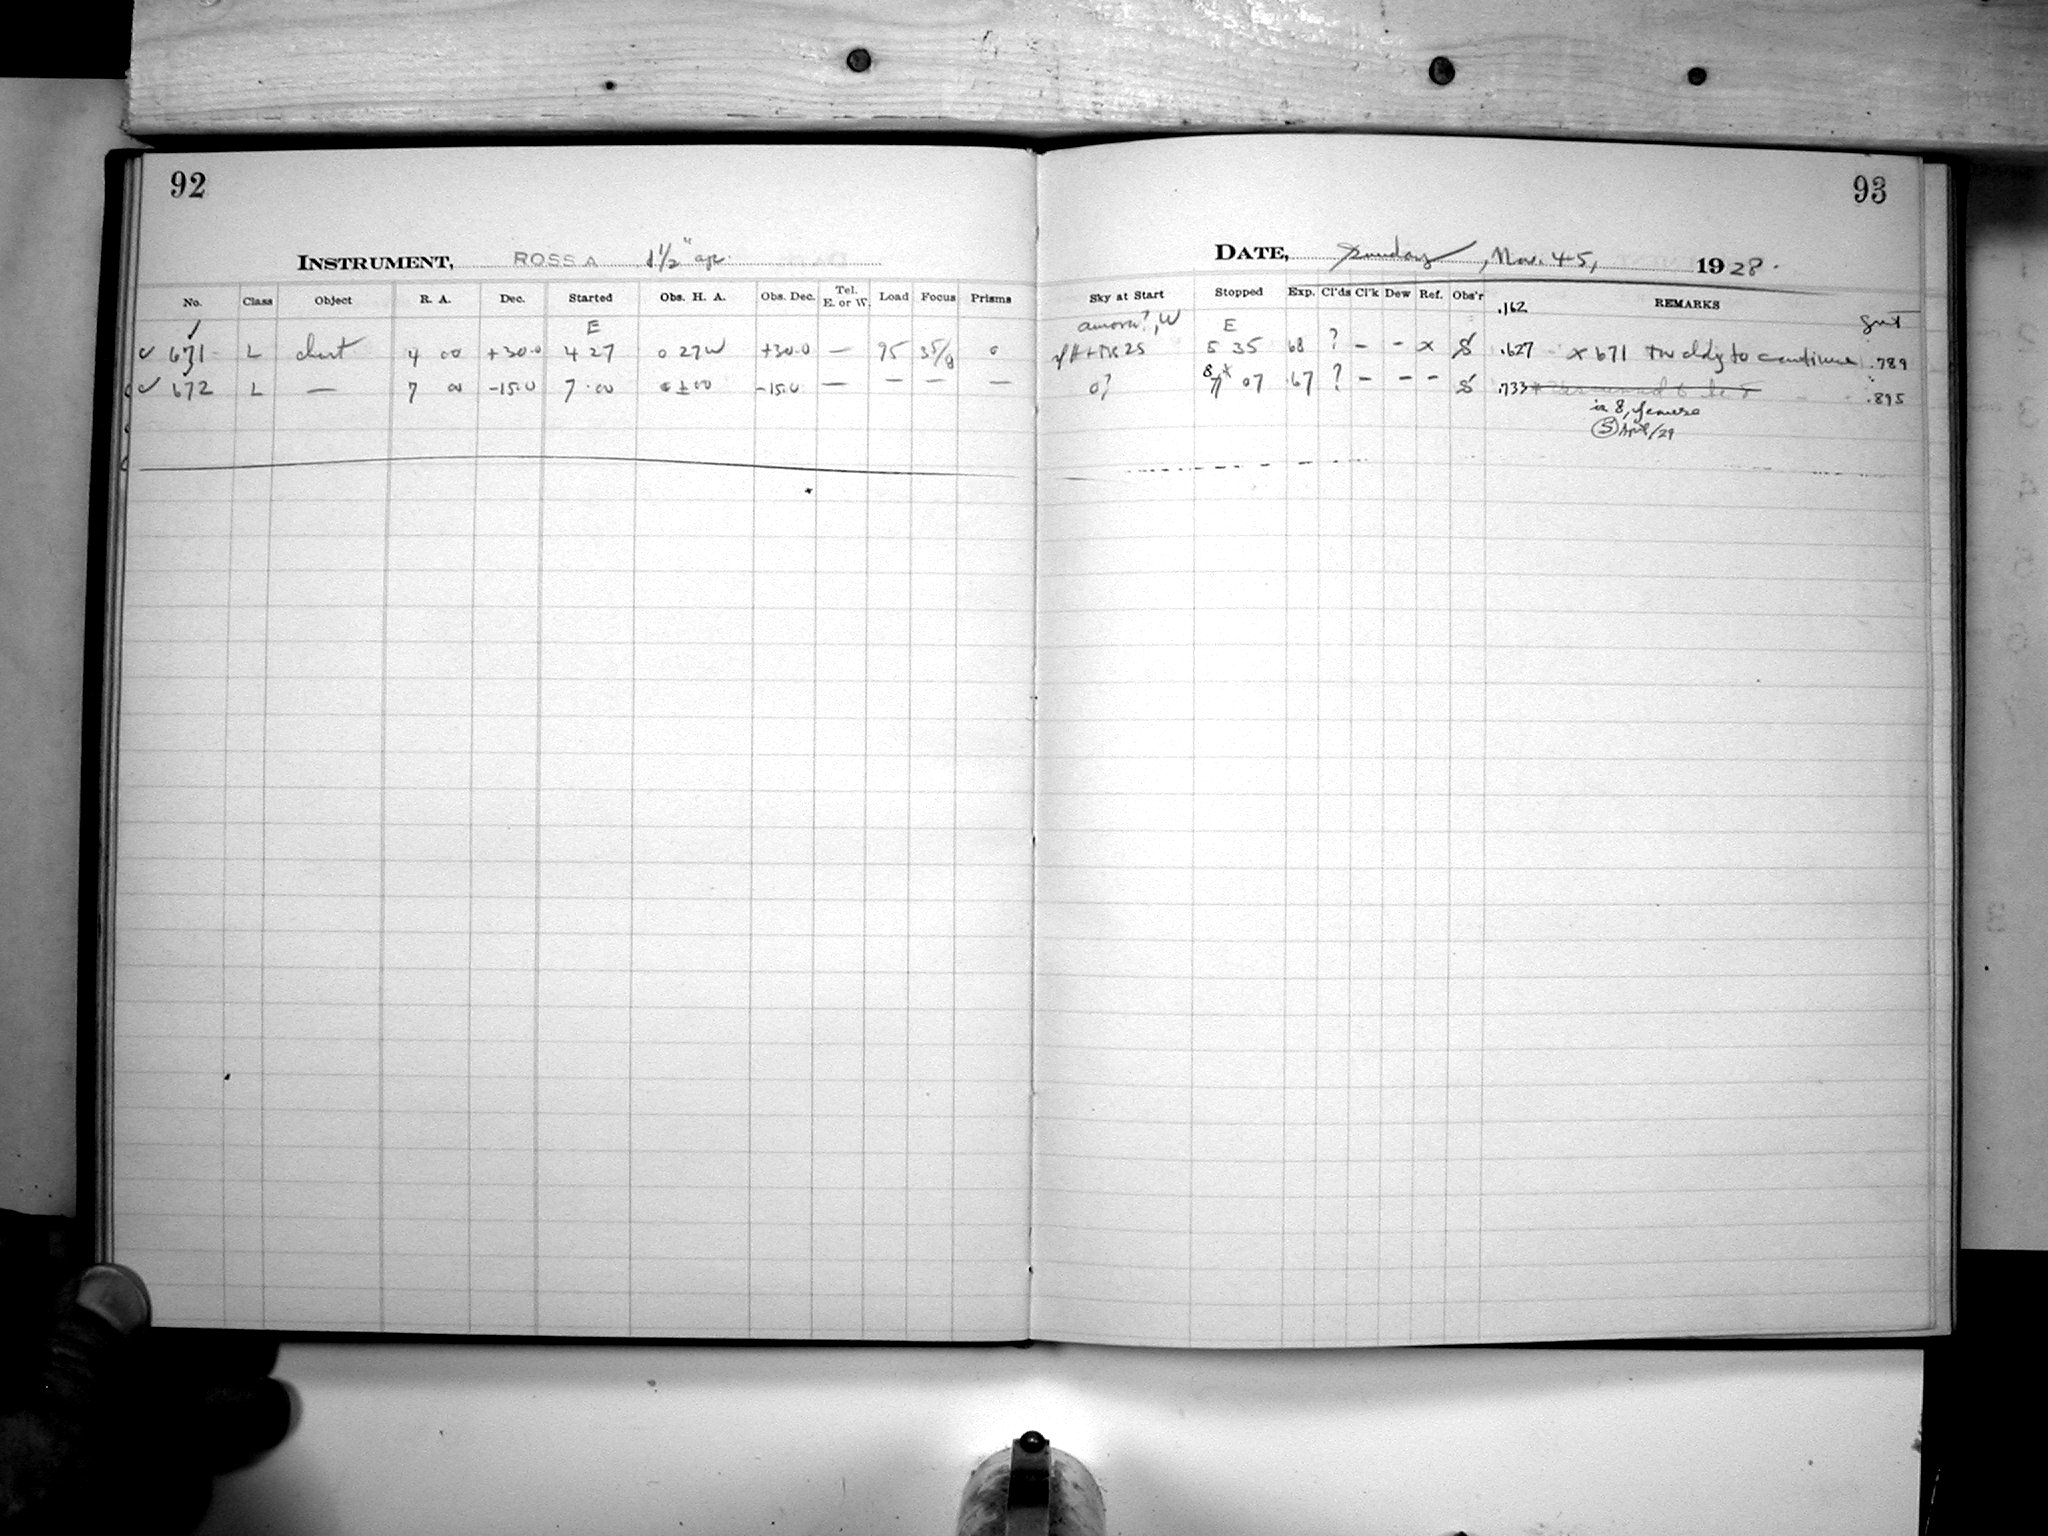 92
INSTRUMENT, ROSS A 1½" ap.
No. Class Object R. A. Dec. Started Obs. H. A. Obs. Dec. Tel. E. or W. Load Focus Prisms
E
671 L 4 00 +30.0 4 27 0 27 W +30.0 — 95 0
672 L — 7 00 -15.0 7 00 0 ± 00 -15.0 — — — —
93
DATE, Sunday, Nov. 4-5, 1928.
Sky at Start Stopped Exp. Cl'ds Cl'k Dew Ref. Obs'r REMARKS
.162
aurora?, W E
5 35 68 ? - - x S .627 x 671 too cldy to continue .789
0? 8 7* 07 67 ? - - - S .733 .895
is 8,
S Apr/29